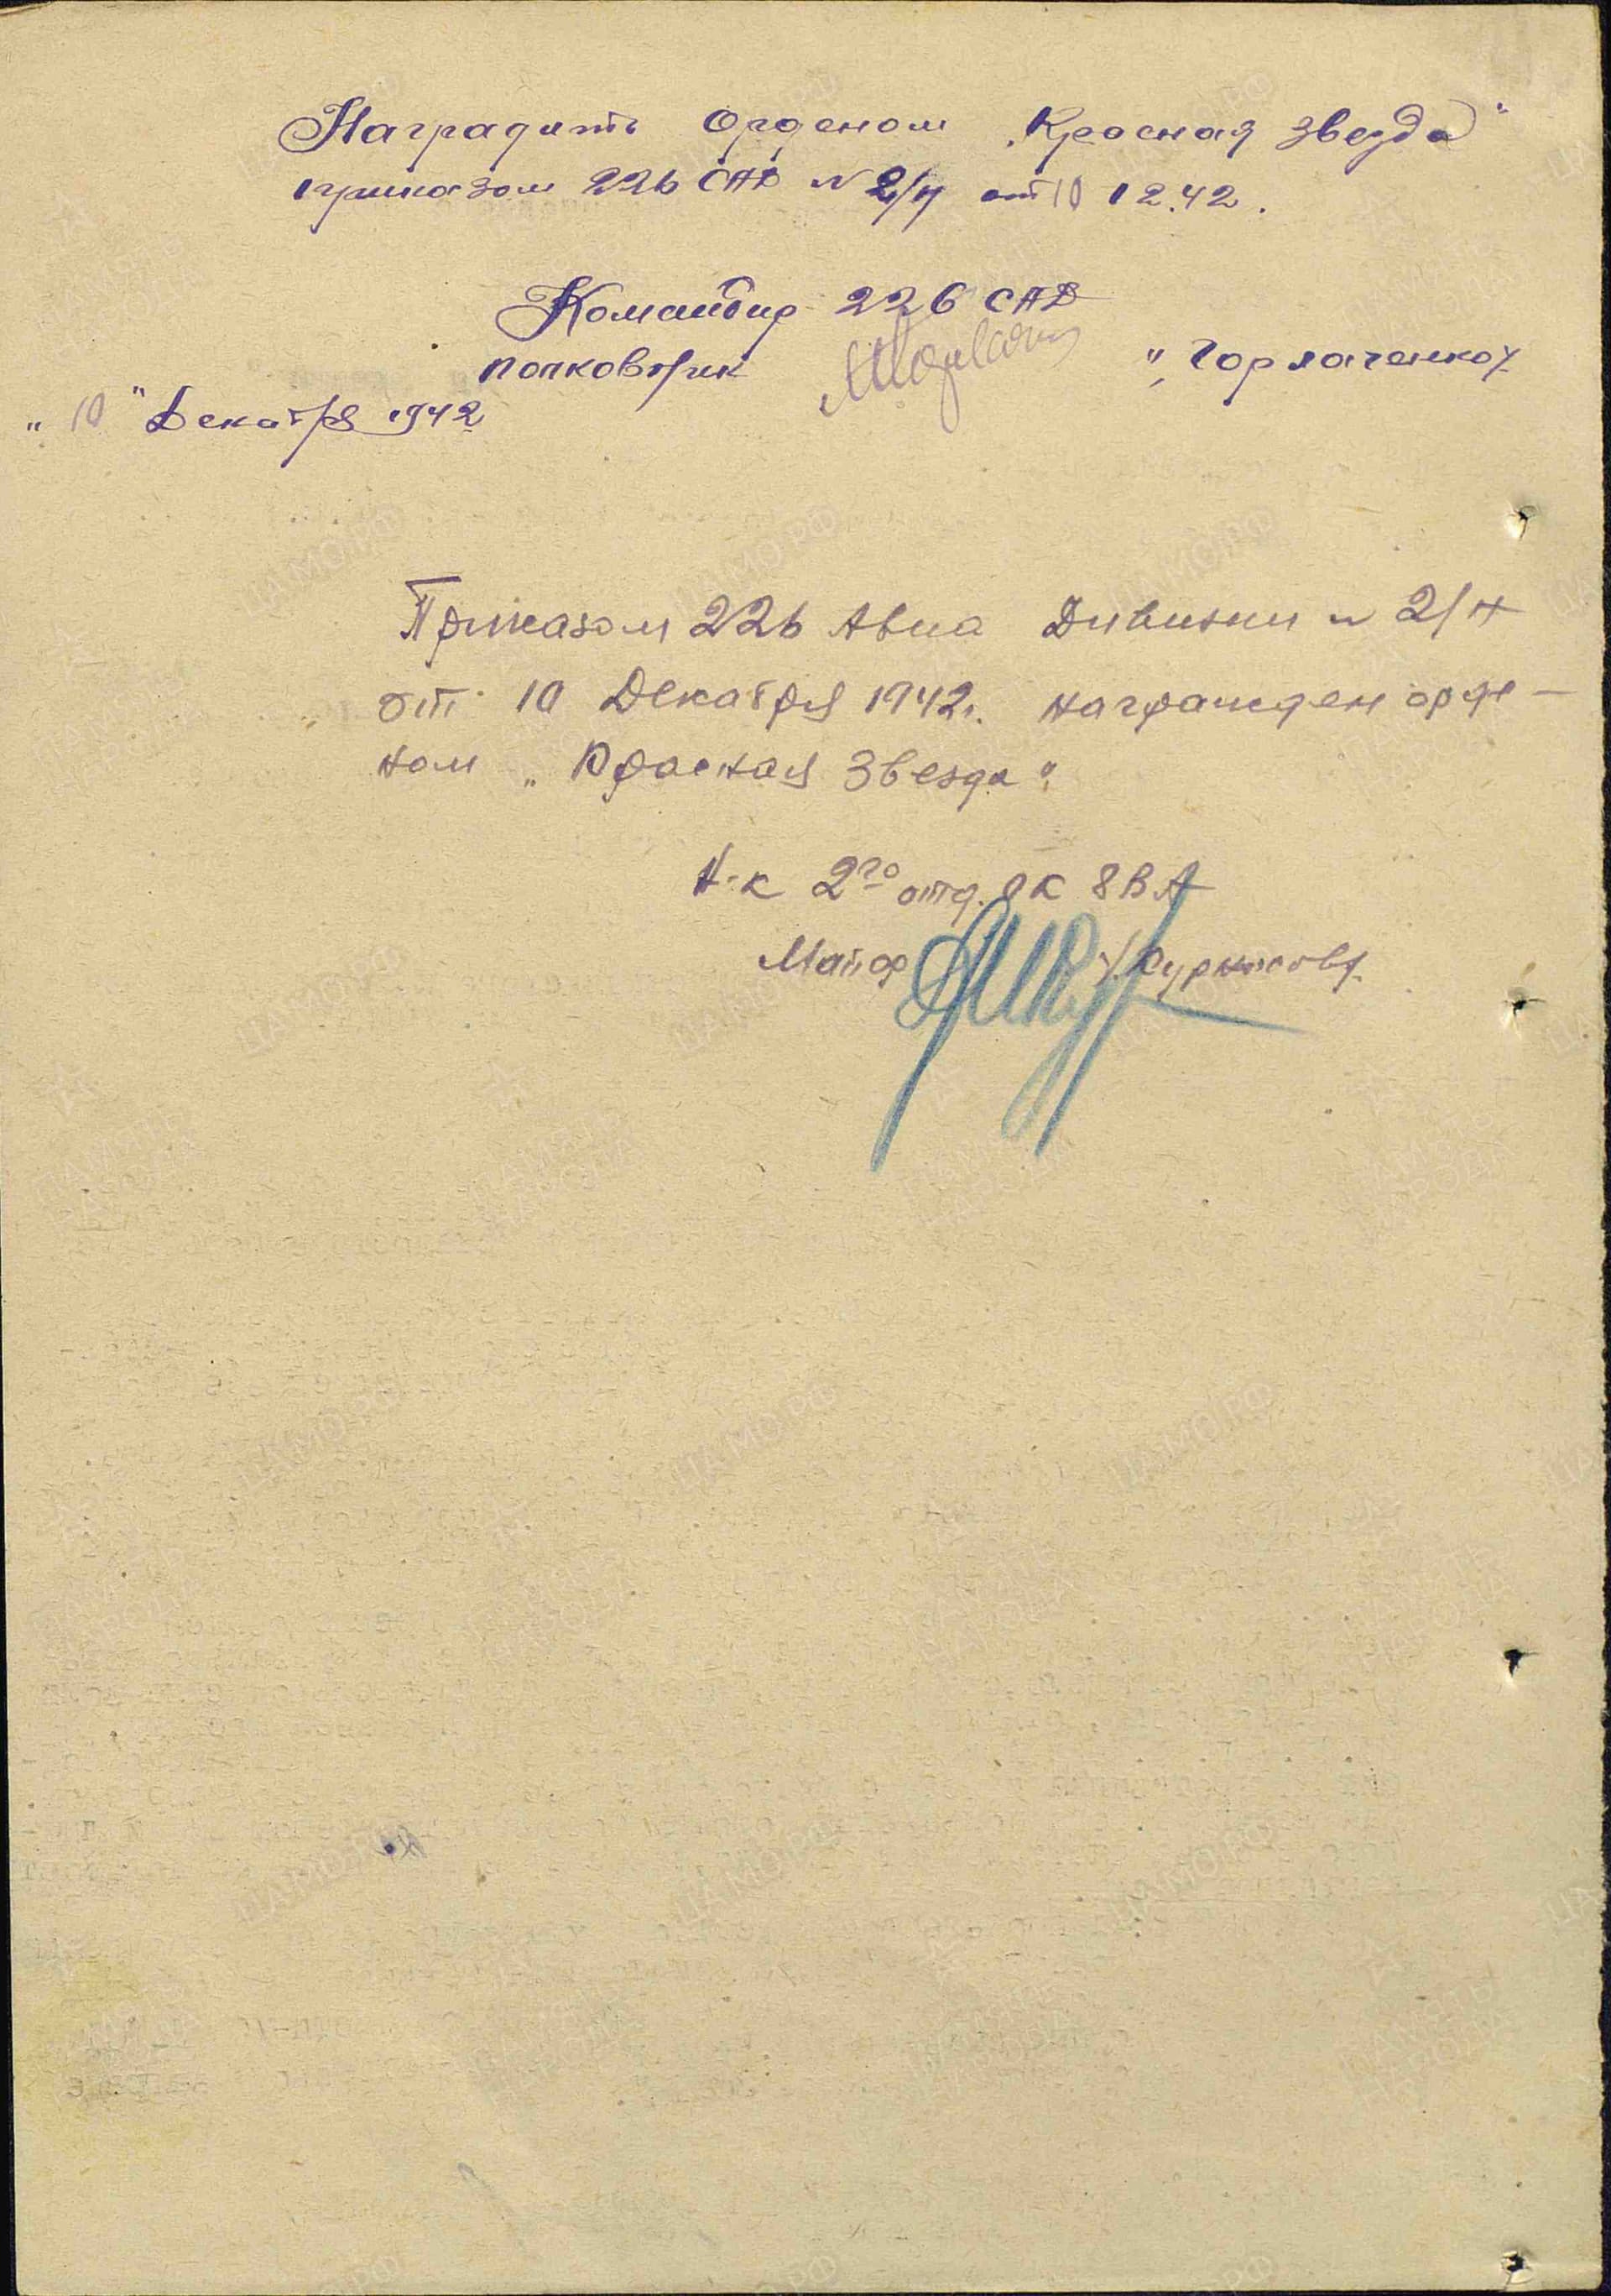 Наградить орденом „Красная звезда"
приказом 226 САД № 2/н от 10 12.42.
Командир 226 САД
полковник „Горлаченко/
„10" Декабря 1942
Приказом 226 Авиа Дивизии № 2/н
от 10 Декабря 1942г. награжден орде-
ном „Красная Звезда"
Н-к 2го отд. ОК 8ВА
Майор /Курносов/.